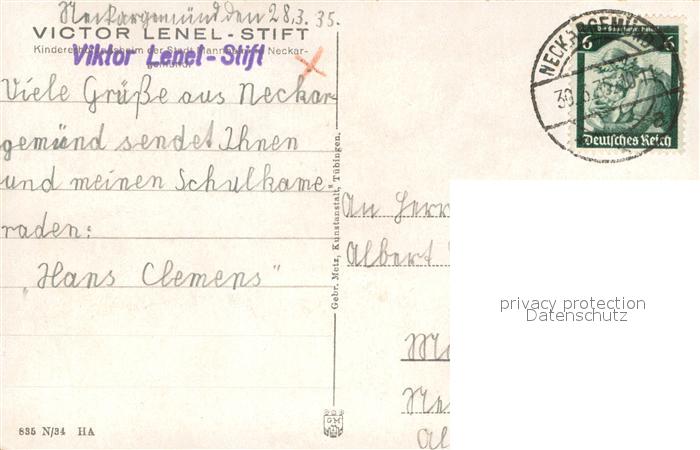 Neckargemünd den 28.3.35.
VICTOR LENEL-STIFT
Kindererholungsheim der Stadt Mannheim in Neckar-
gemünd
Viktor Lenel-Stift
Viele Grüße aus Neckar-
gemünd sendet Ihnen
und meinen Schulkame-
raden:
"Hans Clemens"
835 N/34 HA
Gebr. Metz, Kunstanstalt, Tübingen.
NECKARGEMÜND
6 6
Deutsches Reich
An Herr
Albert
privacy protection
Datenschutz